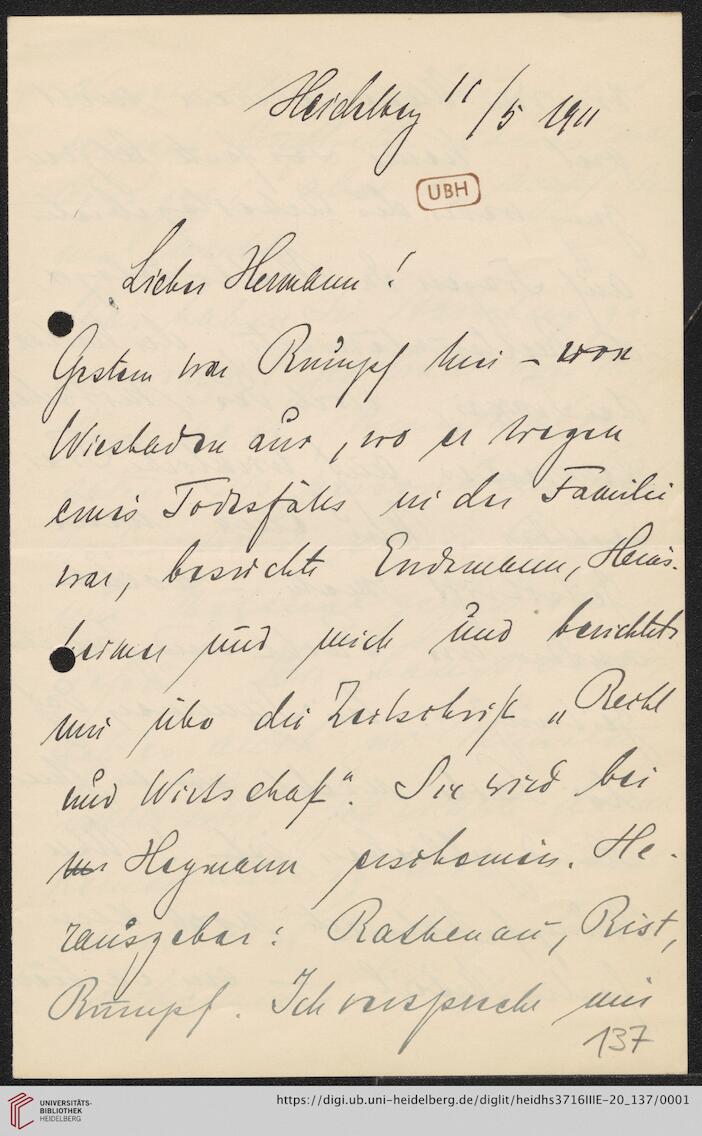 Heidelberg 11/5 1911
UBH
Lieber Hermann!
Gestern war Rumpf hier – von
Wiesbaden aus, wo er wegen
eines Todesfalls in der Familie
war, besuchte Endemann, Heins-
heimer und mich und berichtete
mir über die Zeitschrift „Recht
und Wirtschaft“. Sie wird bei
Heymann erscheinen. He-
rausgeber: Rathenau, Rist,
Rumpf. Ich verspreche mir
137
UNIVERSITÄTS-
BIBLIOTHEK
HEIDELBERG
https://digi.ub.uni-heidelberg.de/diglit/heidhs3716IIIE-20_137/0001